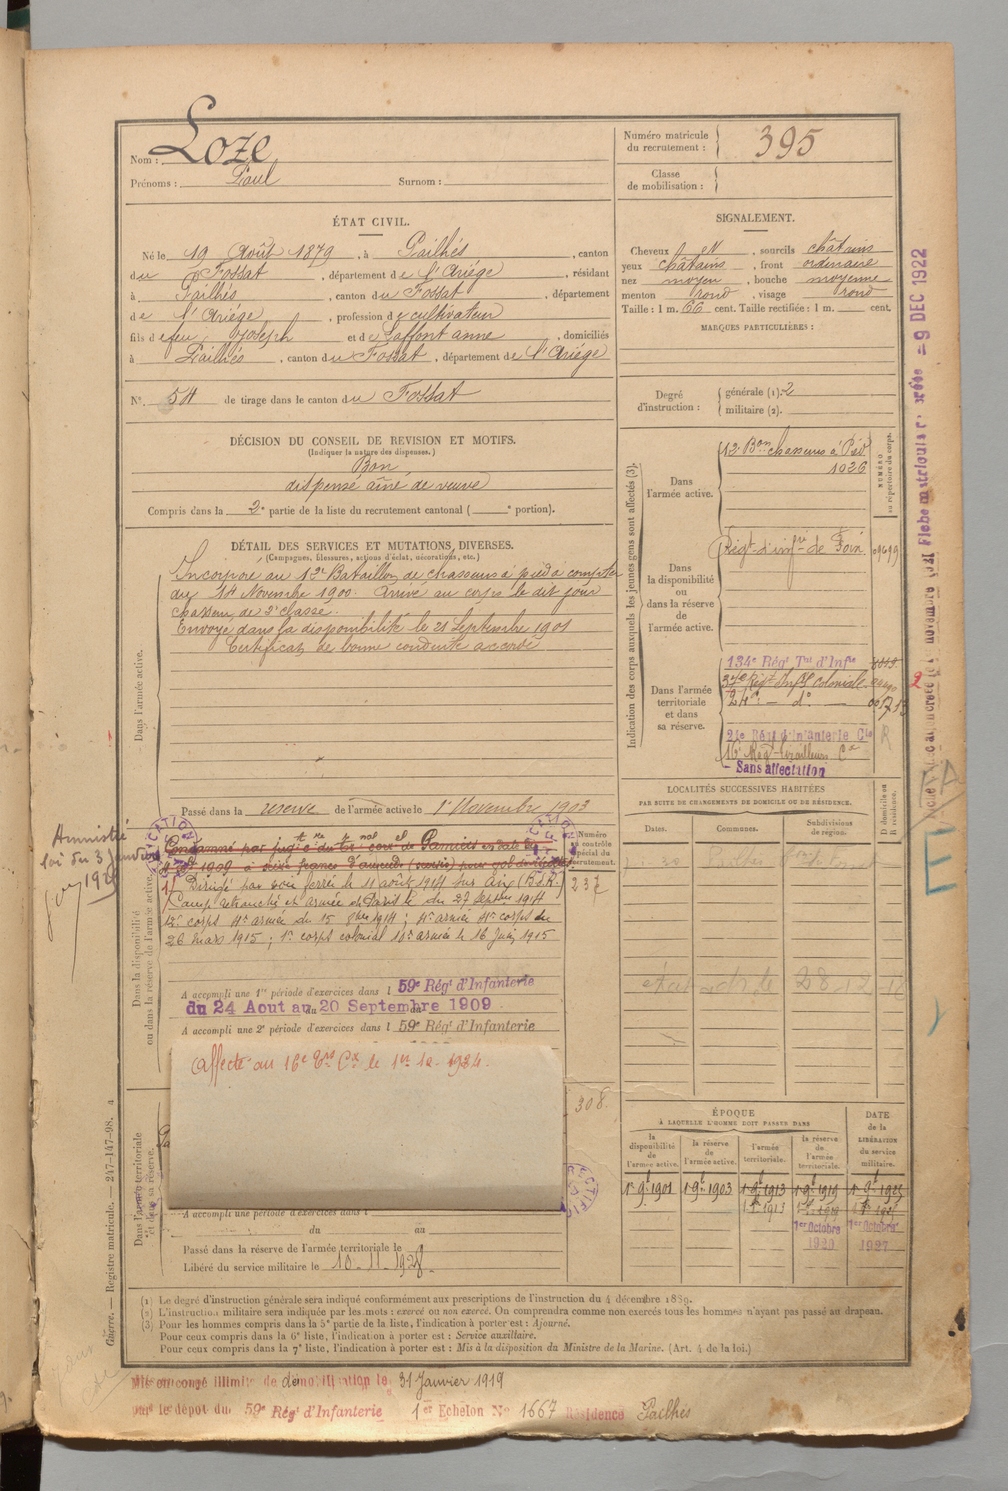 Nom : Loze
Prénoms : Paul Surnom :
Numéro matricule du recrutement : 395
Classe de mobilisation :
ÉTAT CIVIL.
Né le 19 Août 1879, à Pailhés, canton
du Fossat, département de l'Ariége, résidant
à Pailhés, canton du Fossat, département
de l'Ariége, profession de cultivateur
fils de feu Joseph et de Laffont anne, domiciliés
à Pailhés, canton du Fossat, département de l'Ariége
N° 54 de tirage dans le canton du Fossat
SIGNALEMENT.
Cheveux N, sourcils châtains
yeux châtains, front ordinaire
nez moyen, bouche moyenne
menton rond, visage rond
Taille : 1 m. 66 cent. Taille rectifiée : 1 m. cent.
MARQUES PARTICULIÈRES :
Degré d'instruction : générale (1). 2
militaire (2).
DÉCISION DU CONSEIL DE REVISION ET MOTIFS.
(Indiquer la nature des dispenses.)
Bon
dispensé aîné de veuve
Compris dans la 2e partie de la liste du recrutement cantonal ( e portion).
DÉTAIL DES SERVICES ET MUTATIONS DIVERSES.
(Campagnes, blessures, actions d'éclat, décorations, etc.)
Dans l'armée active.
Incorporé au 12e Bataillon de chasseurs à pied à compter
du 14 Novembre 1900. Arrivé au corps le dit jour
chasseur de 2e classe.
Envoyé dans la disponibilité le 21 Septembre 1901
Certificat de bonne conduite accordé
Passé dans la réserve de l'armée active le 1er Novembre 1903
Indication des corps auxquels les jeunes gens sont affectés (3).
NUMÉRO au répertoire du corps.
Dans l'armée active.
12e Bon chasseurs à Pied
1026
Dans la disponibilité ou dans la réserve de l'armée active.
Régt d'infrie de Foix
Dans l'armée territoriale et dans sa réserve.
134e Régt Tal d'Infie
37e Régt Infie Coloniale
24e d° — d° —
21e Régt d'Infanterie Cle
16e Régt Tirailleurs Cx
Sans affectation
LOCALITÉS SUCCESSIVES HABITÉES
PAR SUITE DE CHANGEMENTS DE DOMICILE OU DE RÉSIDENCE.
Dates. Communes. Subdivisions de région. D domicile ou R résidence.
28 12 18
Amnistié
loi du 3 Janvier
1925
Dans la disponibilité ou dans la réserve de l'armée active.
Numéro au contrôle spécial du recrutement.
237
1) Dirigé par voie ferrée le 11 août 1914 sur Aix (B.S.R.)
Camp retranché et armée de Paris le du 27 Septbre 1914
12e corps 4e armée du 15 8bre 1914 ; 4e armée 4e corps du
26 mars 1915 ; 1er corps colonial 10e armée le 16 Juin 1915
A accompli une 1re période d'exercices dans l 59e Régt d'Infanterie
du 24 Aout au 20 Septembre 1909
A accompli une 2e période d'exercices dans l 59e Régt d'Infanterie
affecté au 16e Tirs Cx le 1er 12. 1924.
308.
Dans l'armée territoriale et dans sa réserve.
A accompli une période d'exercices dans l
du au
Passé dans la réserve de l'armée territoriale le
Libéré du service militaire le 10-11-1928
ÉPOQUE
À LAQUELLE L'HOMME DOIT PASSER DANS
la disponibilité de l'armée active. la réserve de l'armée active. l'armée territoriale. la réserve de l'armée territoriale.
DATE de la LIBÉRATION du service militaire.
1er 9bre 1901 1er 9bre 1903 1er 9bre 1913 1er 9bre 1919 1er 9bre 1925
1er Octobre 1920 1er Octobre 1927
(1) Le degré d'instruction générale sera indiqué conformément aux prescriptions de l'instruction du 4 décembre 1889.
(2) L'instruction militaire sera indiquée par les mots : exercé ou non exercé. On comprendra comme non exercés tous les hommes n'ayant pas passé au drapeau.
(3) Pour les hommes compris dans la 5e partie de la liste, l'indication à porter est : Ajourné.
Pour ceux compris dans la 6e liste, l'indication à porter est : Service auxiliaire.
Pour ceux compris dans la 7e liste, l'indication à porter est : Mis à la disposition du Ministre de la Marine. (Art. 4 de la loi.)
Guerre. — Registre matricule. — 247-147-98. a
Mis en congé illimité de démobilisation le 31 Janvier 1919
par le dépôt du 59e Régt d'Infanterie 1er Echelon N° 1667 Résidence Pailhés
9 DEC 1922